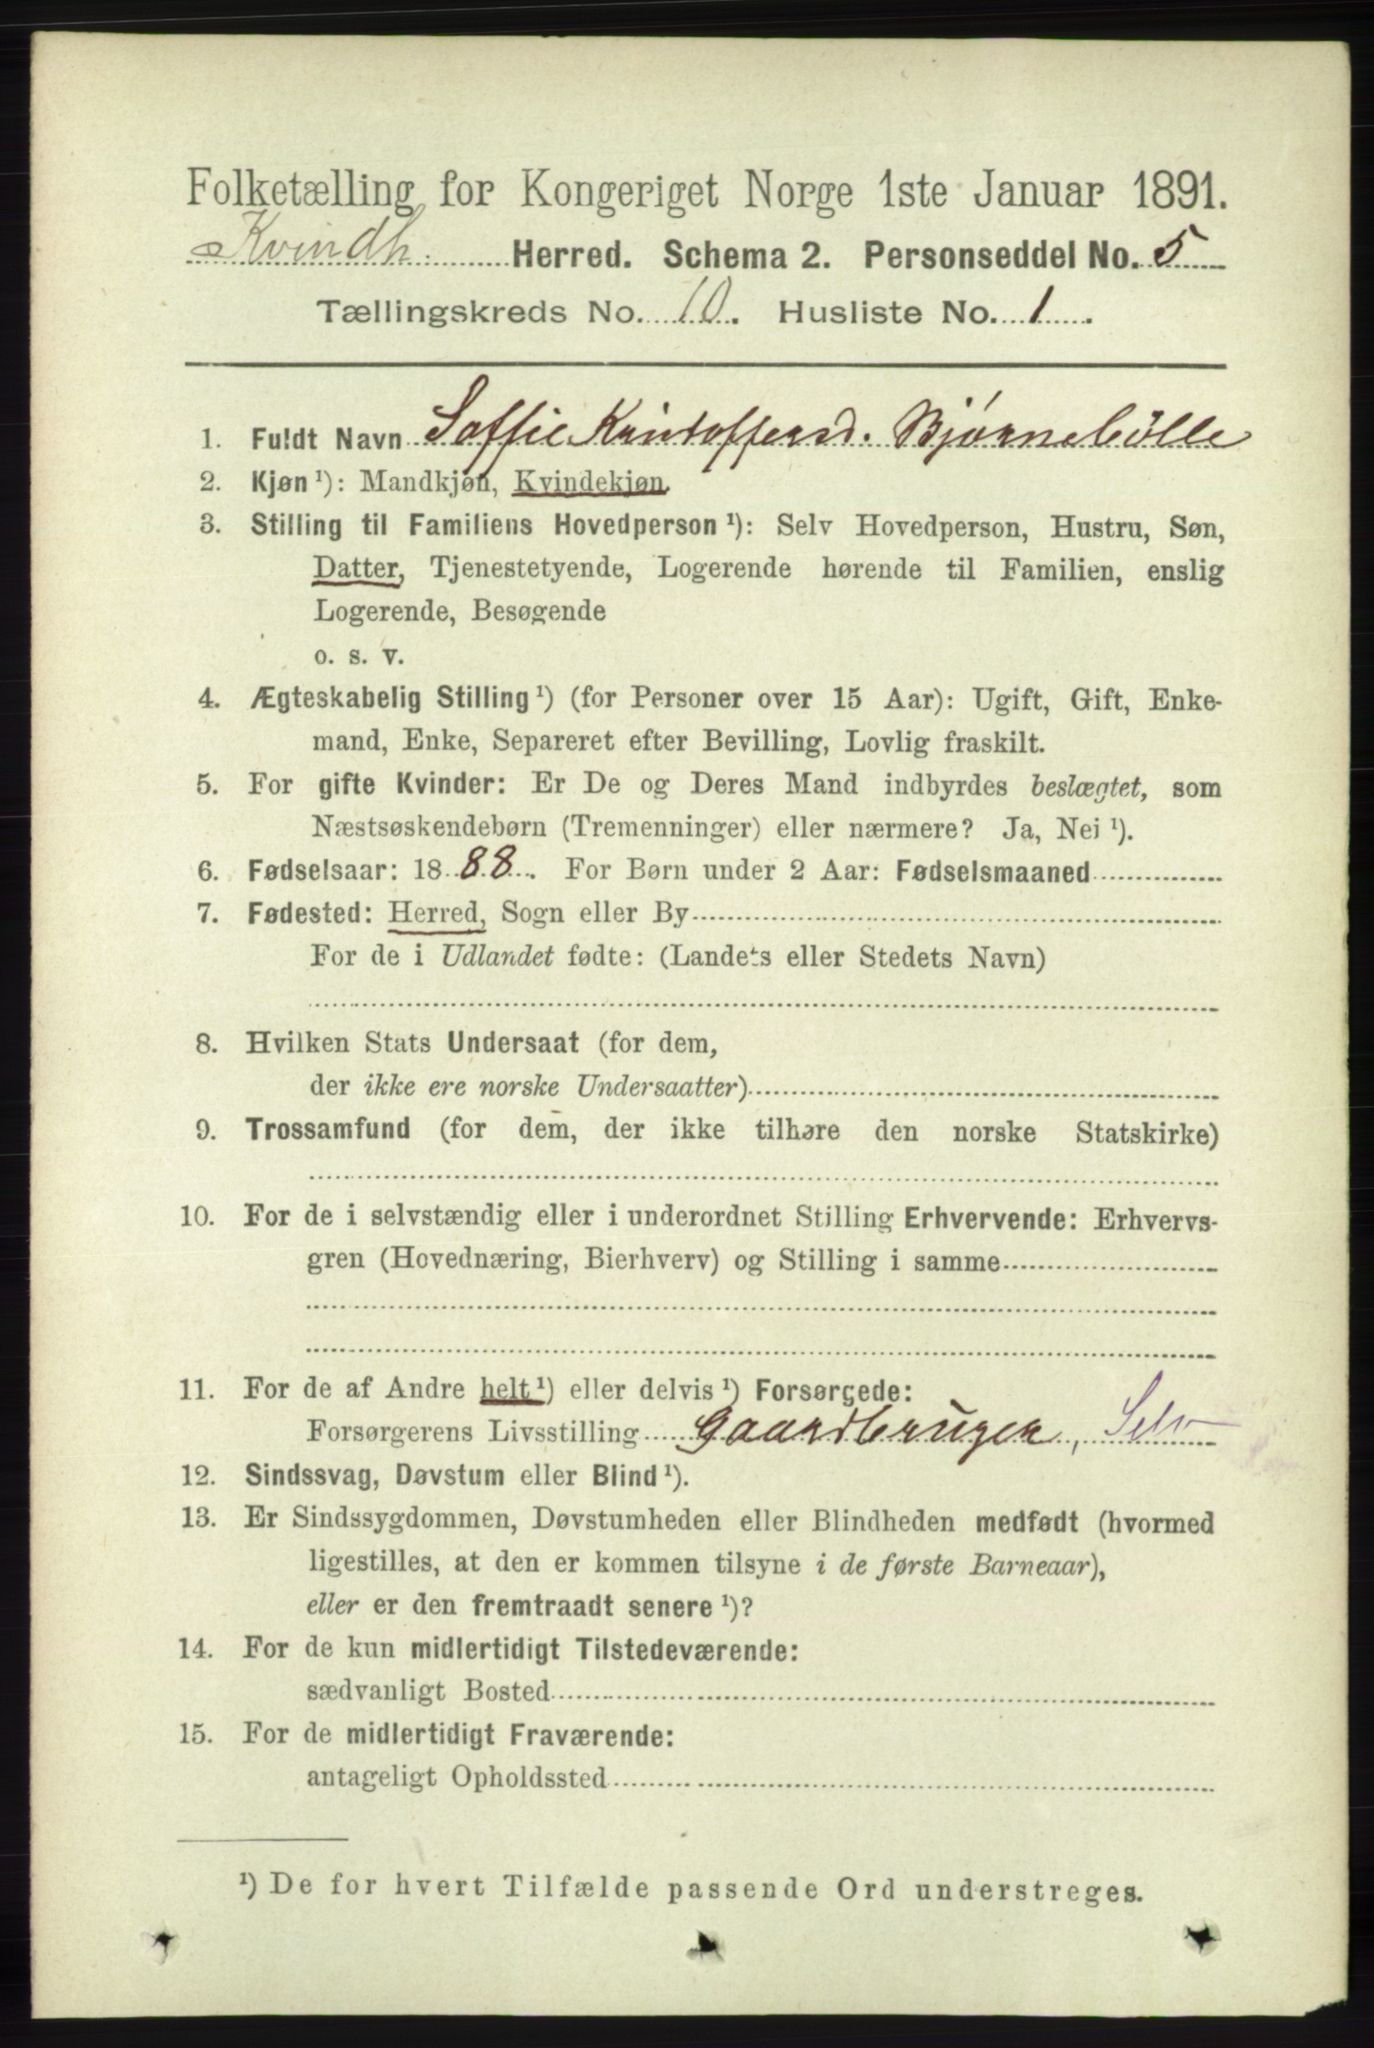 Folketælling for Kongeriget Norge 1ste Januar 1891.
Kvindh. Herred. Schema 2. Personseddel No. 5
Tællingskreds No. 10. Husliste No. 1.
1. Fuldt Navn Soffie Kristoffersd. Bjørnebölle
2. Kjøn ¹): Mandkjøn, Kvindekjøn
3. Stilling til Familiens Hovedperson ¹): Selv Hovedperson, Hustru, Søn,
Datter, Tjenestetyende, Logerende hørende til Familien, enslig
Logerende, Besøgende
o. s. v.
4. Ægteskabelig Stilling ¹) (for Personer over 15 Aar): Ugift, Gift, Enke-
mand, Enke, Separeret efter Bevilling, Lovlig fraskilt.
5. For gifte Kvinder: Er De og Deres Mand indbyrdes beslægtet, som
Næstsøskendebørn (Tremenninger) eller nærmere? Ja, Nei ¹).
6. Fødselsaar: 1888. For Børn under 2 Aar: Fødselsmaaned
7. Fødested: Herred, Sogn eller By
For de i Udlandet fødte: (Landets eller Stedets Navn)
8. Hvilken Stats Undersaat (for dem,
der ikke ere norske Undersaatter)
9. Trossamfund (for dem, der ikke tilhøre den norske Statskirke)
10. For de i selvstændig eller i underordnet Stilling Erhvervende: Erhvervs-
gren (Hovednæring, Bierhverv) og Stilling i samme
11. For de af Andre helt ¹) eller delvis ¹) Forsørgede:
Forsørgerens Livsstilling Gaardbruger, Selv
12. Sindssvag, Døvstum eller Blind ¹).
13. Er Sindssygdommen, Døvstumheden eller Blindheden medfødt (hvormed
ligestilles, at den er kommen tilsyne i de første Barneaar),
eller er den fremtraadt senere ¹)?
14. For de kun midlertidigt Tilstedeværende:
sædvanligt Bosted
15. For de midlertidigt Fraværende:
antageligt Opholdssted
¹) De for hvert Tilfælde passende Ord understreges.